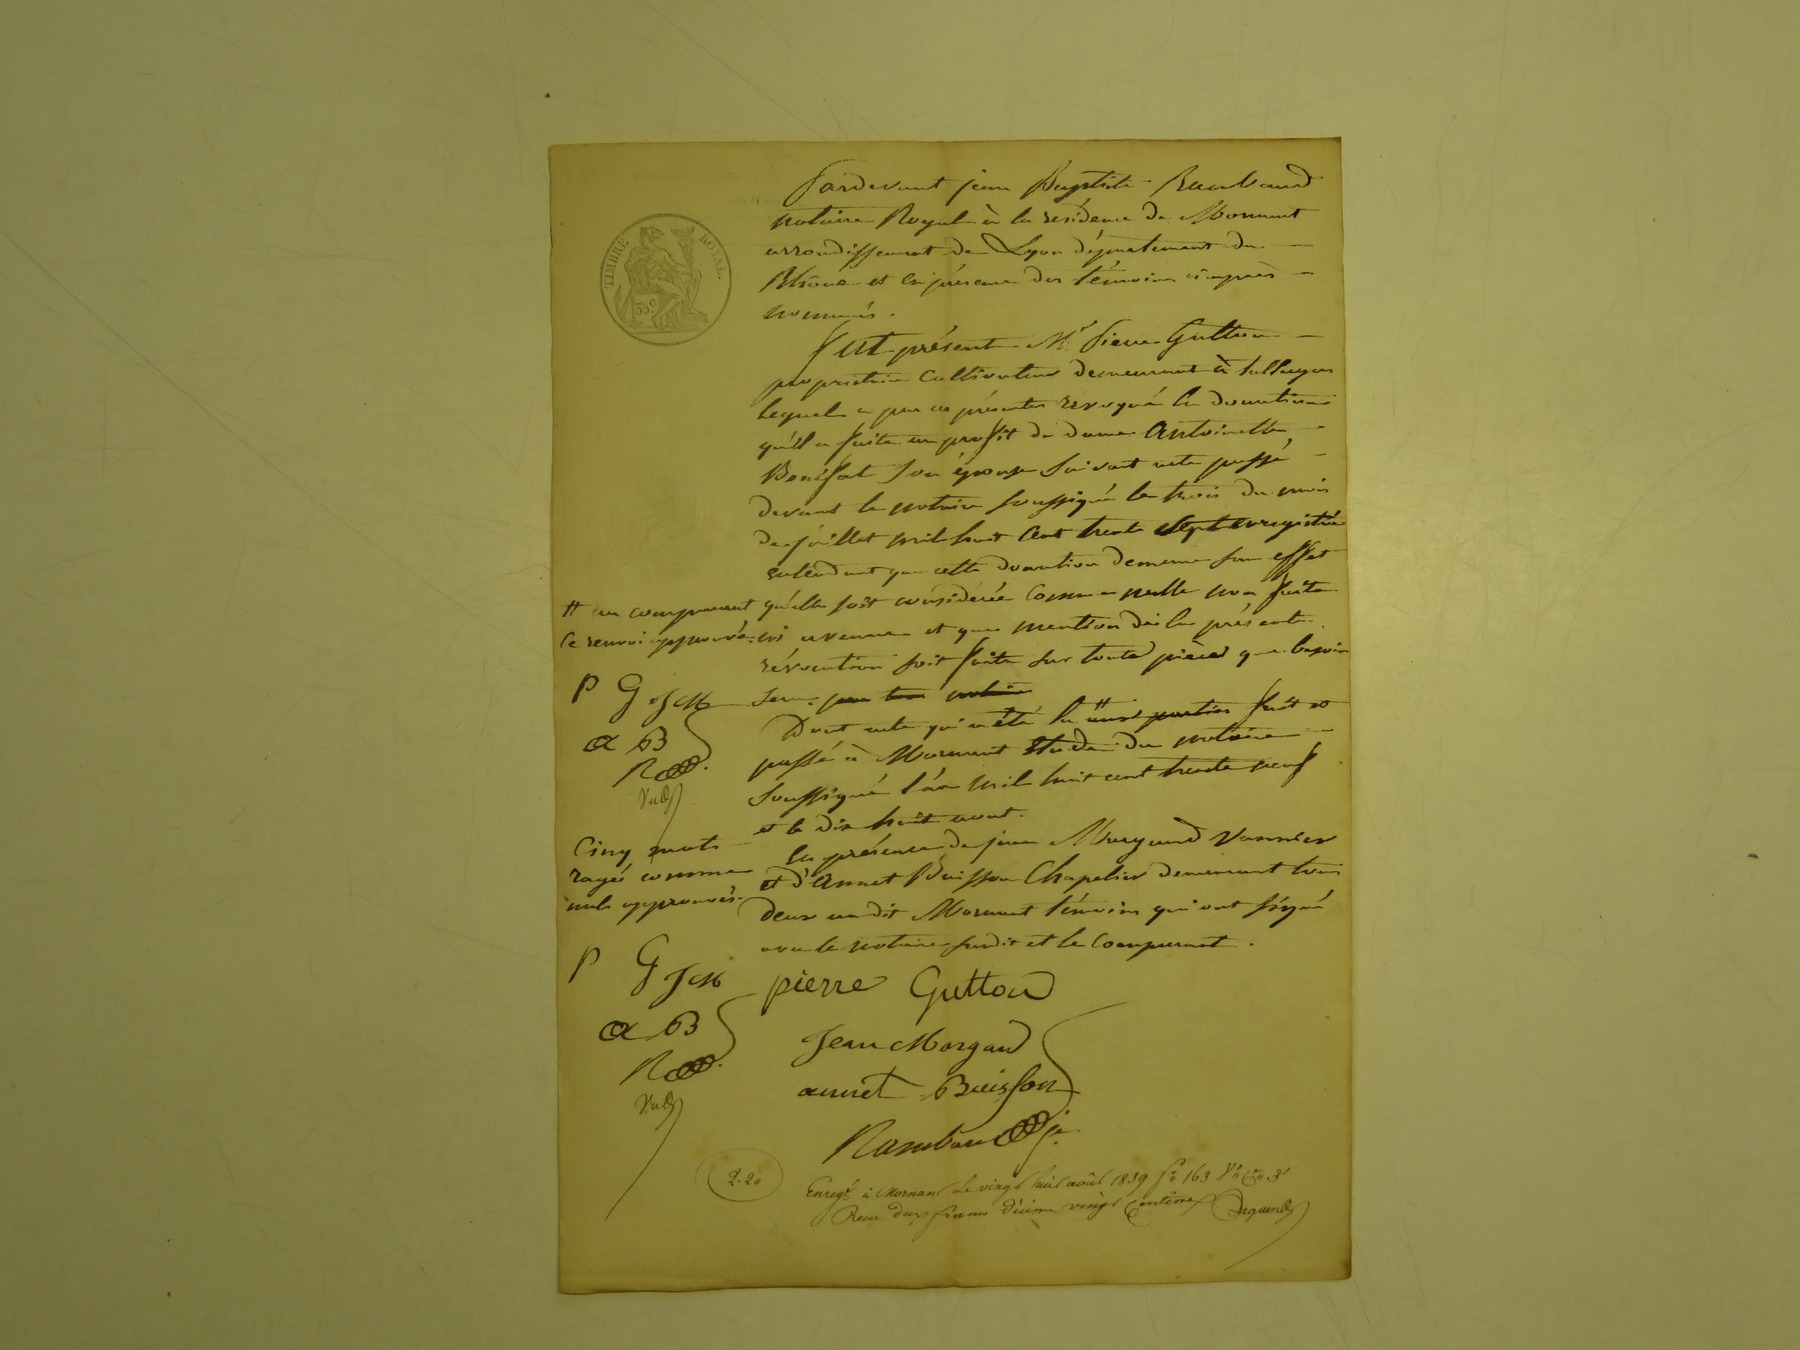 TIMBRE ROYAL.
35c
Pardevant jean Baptiste Rambaud
notaire Royal à la résidence de Mornant
arrondissement de Lyon département du
Rhône et en présence des témoins ci après
nommés.
Fut présent Mr Pierre Gutton
propriétaire Cultivateur demeurant à
lequel a par ces présentes révoqué la donation
qu'il a faite au profit de dame Antoinette
son épouse suivant acte passé
devant le notaire soussigné le trois du mois
de juillet mil huit Cent trente Sept enregistrée
entendant que cette donation demeure sans effet
qu'elle soit considérée Comme nulle non faite
ni avenue et que mention de la présente
révocation soit faite sur toute pièce que besoin
sera
Dont acte qui a été lu # fait et
passé à Mornant étude du notaire
soussigné l'an mil huit cent trente neuf
et le dix huit aout.
En présence de jean Morgand Vannier
et d'Annet Buisson Chapelier demeurant tous
deux au dit Mornant témoins qui ont signé
avec le notaire susdit et le Comparant.
# au comparant
Ce renvoi approuvé.
P G JM
a B
R
Cinq mots
rayés comme
nuls approuvés.
P G JM
a B
R
pierre Gutton
Jean Morgand
annet Buisson
Rambaud je
2.20
Enregé à Mornant le vingt huit août 1839 fo 163 Vo Ce 3
Reçu deux francs décime vingt Centimes